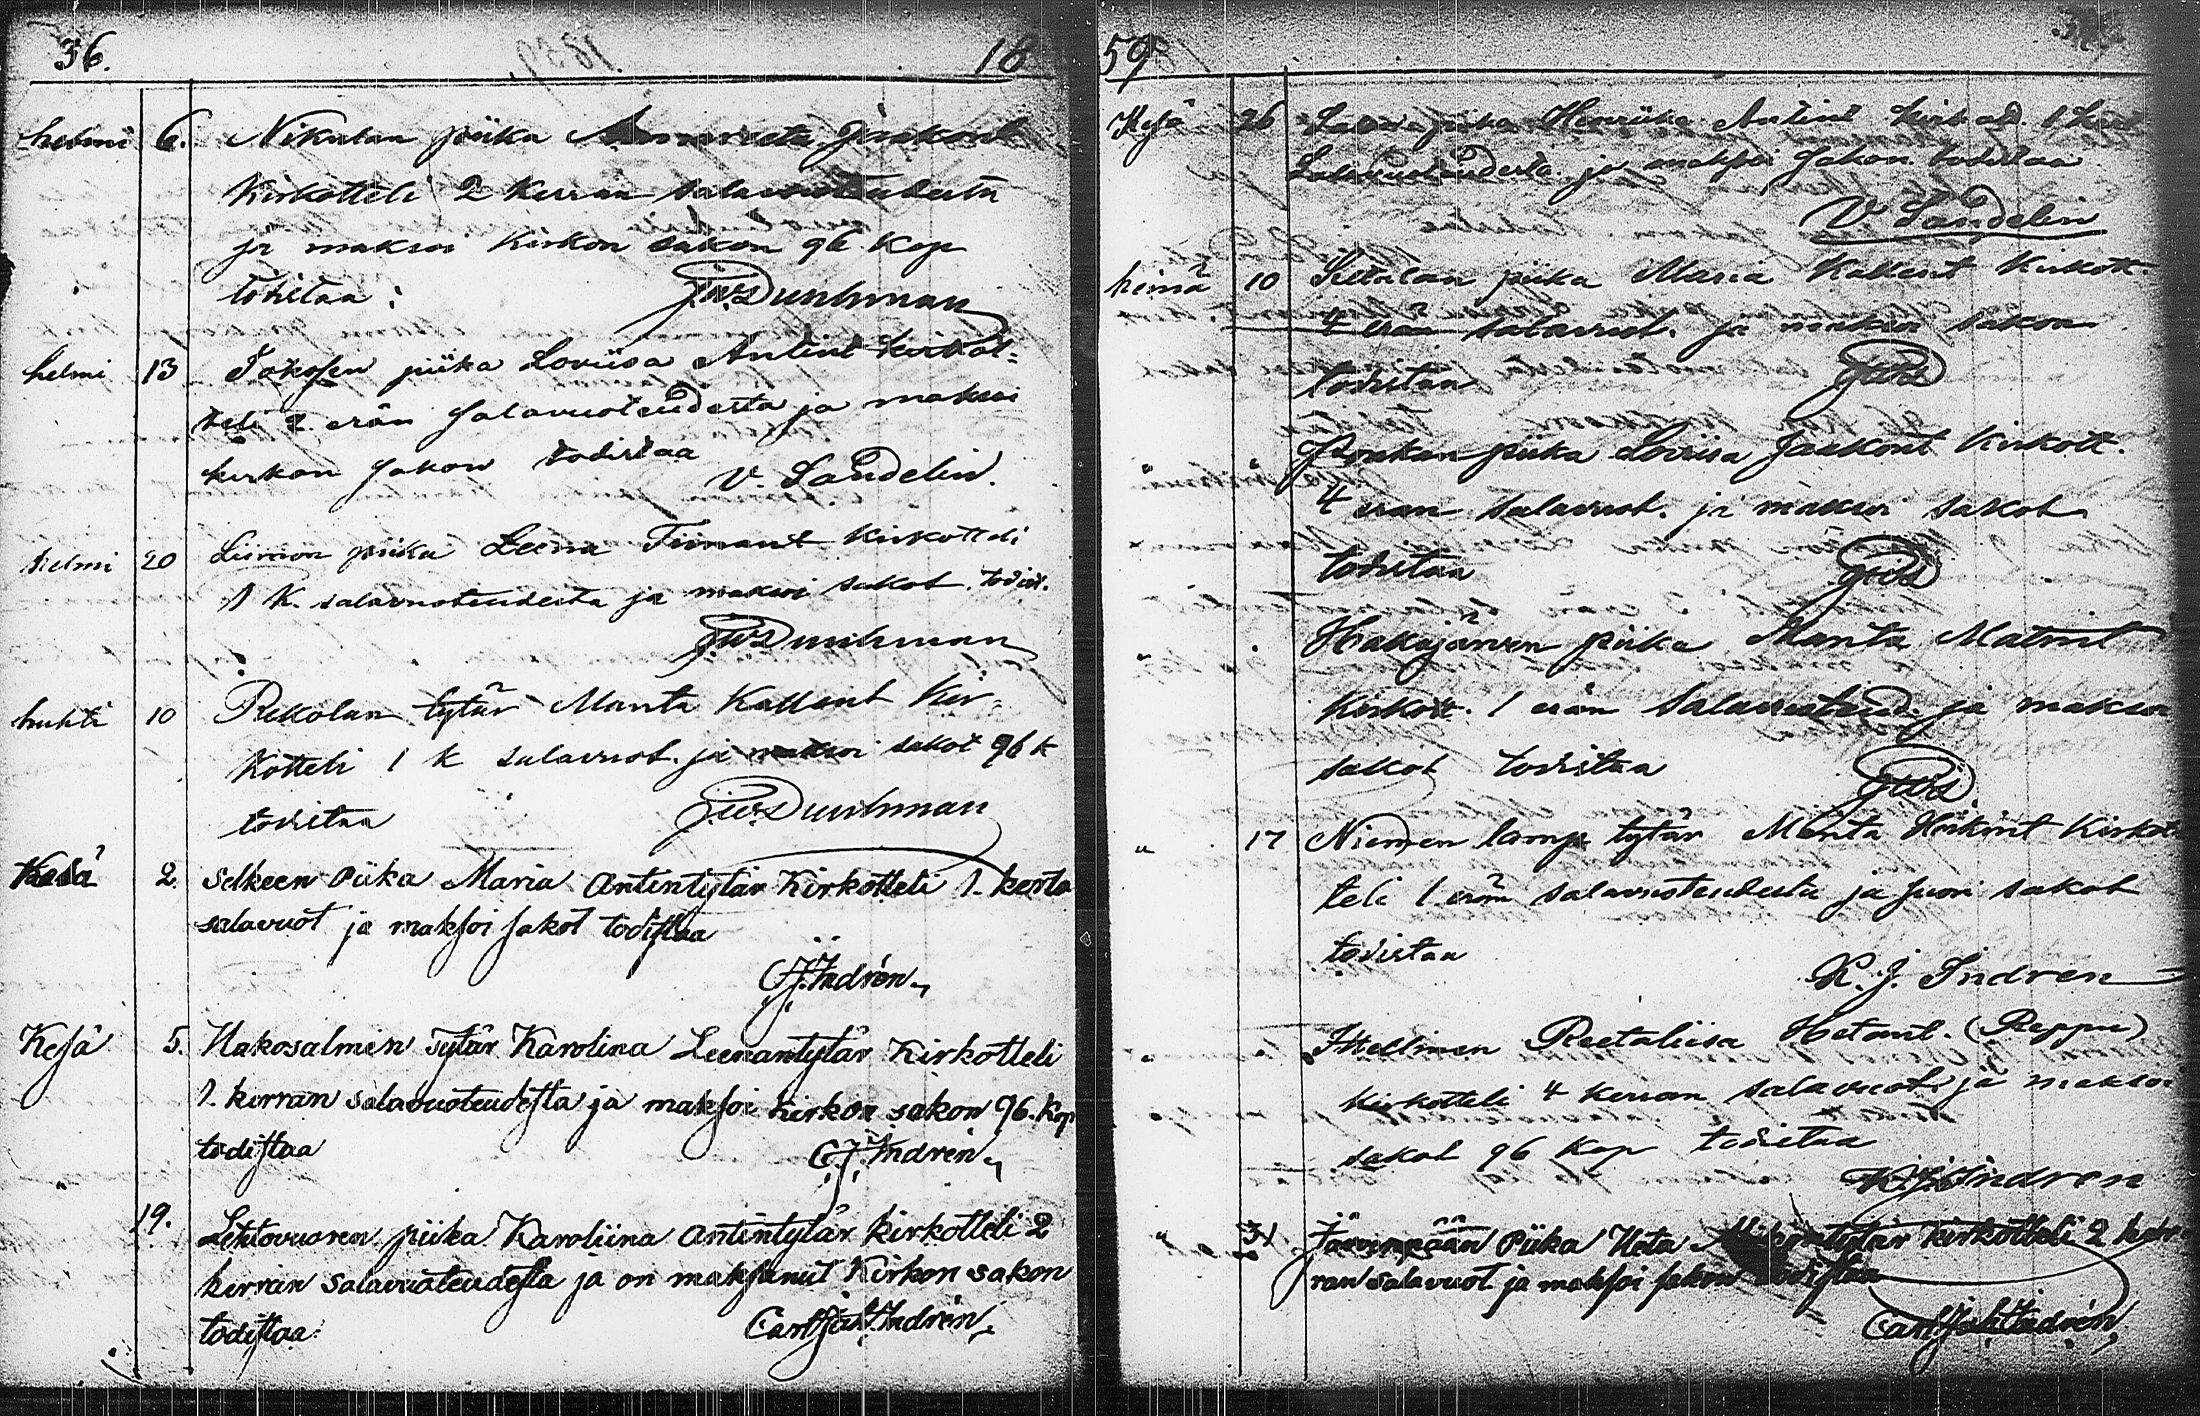 36. 18
helmi 6. Nikulan piika Annareeta Jaakont
Kirkotteli 2 kerran salavuoteudesta
ja maksoi Kirkon sakon 96 Kop
todistaa: JWDurchman
helmi 13 piika Loviisa Antint kirkot-
teli 2 erän salavuoteudesta ja maksoi
kirkon sakon todistaa
V. Landelin.
helmi 20 piika Leena Tiinant Kirkotteli
1 K. salavuoteudesta ja maksoi sakot todist.
JWDurchman
huhti 10 Rekolan tytär Manta Kallent Kir-
kotteli 1 k salavuot. ja maksoi sakot 96 k
todistaa J.W.Durchman
Kesä 2. Selkeen Piika Maria Antintytär Kirkotteli 1. kerta
salavuot ja maksoi sakot todistaa
CJ.Indrén
Kesä 5. Hakosalmen Tytär Karolina Leenantytär Kirkotteli
1. kerran salavuoteudesta ja maksoi kirkon sakon 96. Kop
todistaa C.J.Indrén
" 19. Lehtovuoren piika Karoliina Antintytär kirkotteli 2
kerran salavuoteudesta ja on maksanut Kirkon sakon
todistaa: Carl Joh Indrén
59
Kesä 26 piika Henriika Antint
salavuoteudesta ja maksoi sakon todistaa
V Landelin
heinä 10 piika Maria Kallent Kirkott.
4 erän salavuot. ja maksoi sakon
todistaa JWD
piika Loviisa Jaakont Kirkott.
4 erän salavuot. ja maksoi sakot
todistaa JWD
" Hakajärven piika Manta Matint
Kirkott. 1 erän salavuoteud. ja maksoi
sakot todistaa JWD
" 17 Niemen tytär Manta Heikint Kirkot
teli 1 erän salavuoteudesta ja suori sakot
todistaa
K. J. Indren
" Reetaliisa Hetant. (Reppu)
kirkotteli 4 kerran salavuot. ja maksoi
sakot 96 Kop todistaa
K.J.Indren
" 31 Järvenpään Piika Ueta kirkotteli 2 ker-
ran salavuot ja maksoi sakon todistaa
Carl Joh Indrén